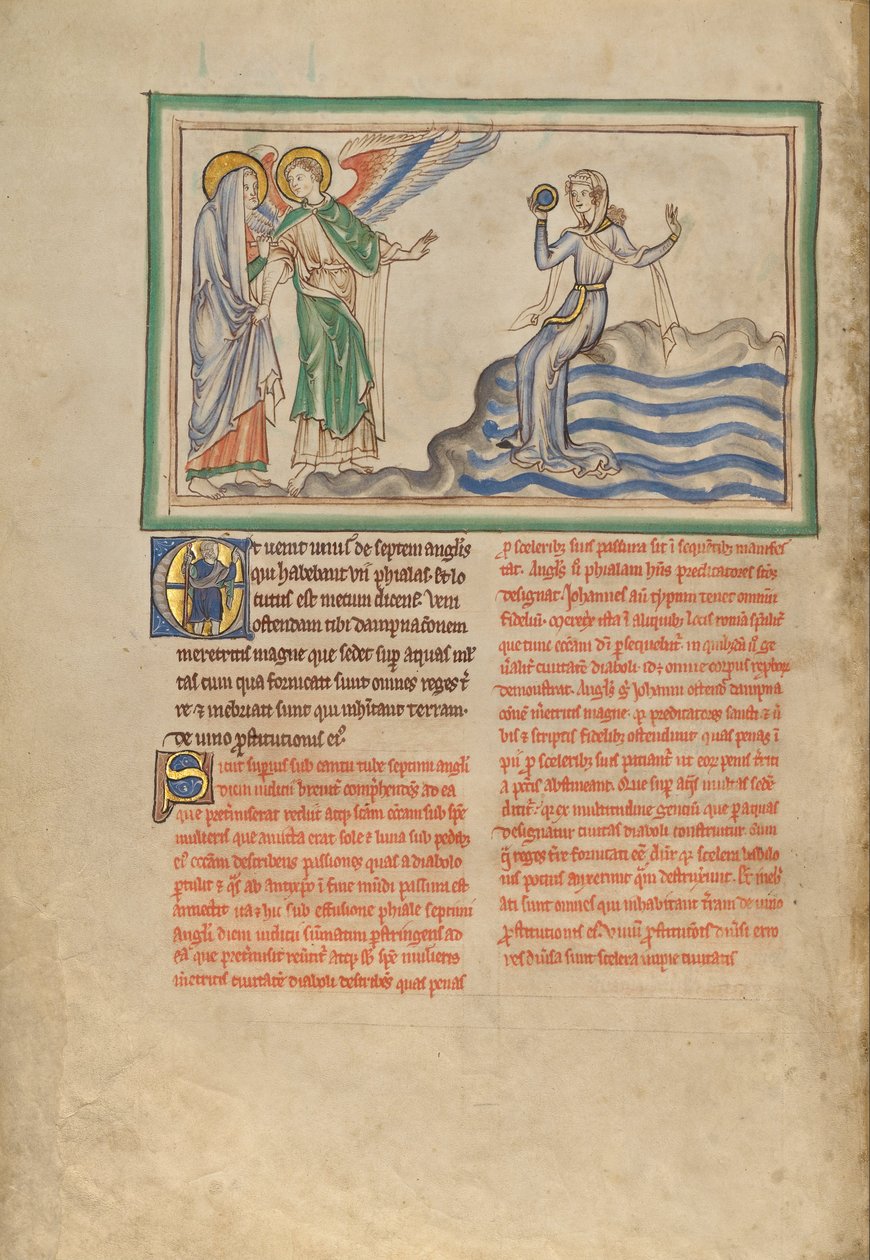 Et venit unus de septem anglis
qui habebant vii phialas. et lo
cutus est mecum dicens. veni
ostendam tibi dampnaconem
meretricis magne que sedet sup aquas ml
tas cum qua fornicati sunt omnes reges tr
re ⁊ inebriati sunt qui inhitant terram.
de vino prostitutionis eiꝰ.
Sicut superius sub cantu tube septimi angli
diem iudicii breviter comprehendens ad ea
que pretermiserat rediit atqꝫ scam eccam sub spe
mulieris que amicta erat sole ⁊ luna sub pedibꝫ
eiꝰ eccam describens passiones quas a diabolo
ptulit ⁊ qs ab antixpo i fine mudi passura est
annectit ita ⁊ hic sub effusione phiale septimi
angli diem iudicii sumatim pstringens ad
ea que ptermisit revtit atqꝫ sb spe mulieris
meretricis civitate diaboli describes quas penas
p sceleribꝫ suis passura sit i sequetibꝫ manifes
tat. Anglꝰ phialam hns predicatores scos
designat. Johannes au typum tenet omium
fidelium. Meretrix ista i aliquibꝫ locis roma
que tunc eccam di psequebatr. in
civitate diaboli. id omne corpus reproborꝫ
demonstrat. Anglꝰ Johanni ostendit dampna
cone meretricis magne. predicatores sancti
bis ⁊ scriptis fidelibꝫ ostendunt quas penas i
pii p sceleribꝫ suis patiantr ut eorꝫ penis territi
a peccis abstineant. Que sup aqs multas sede
dicitr. qr ex multitudine gencium que p aquas
designatur civitas diaboli construitur. Cum
q reges tre fornicati ee dnr qr scelera babilo
nis pocius auxerunt qm destruxerunt. Et ineb
ati sunt omnes qui inhabitant tram de vino
prostitutionis eiꝰ. Vinum prostitutionis diversi erro
res diversa sunt scelera impie civitatis